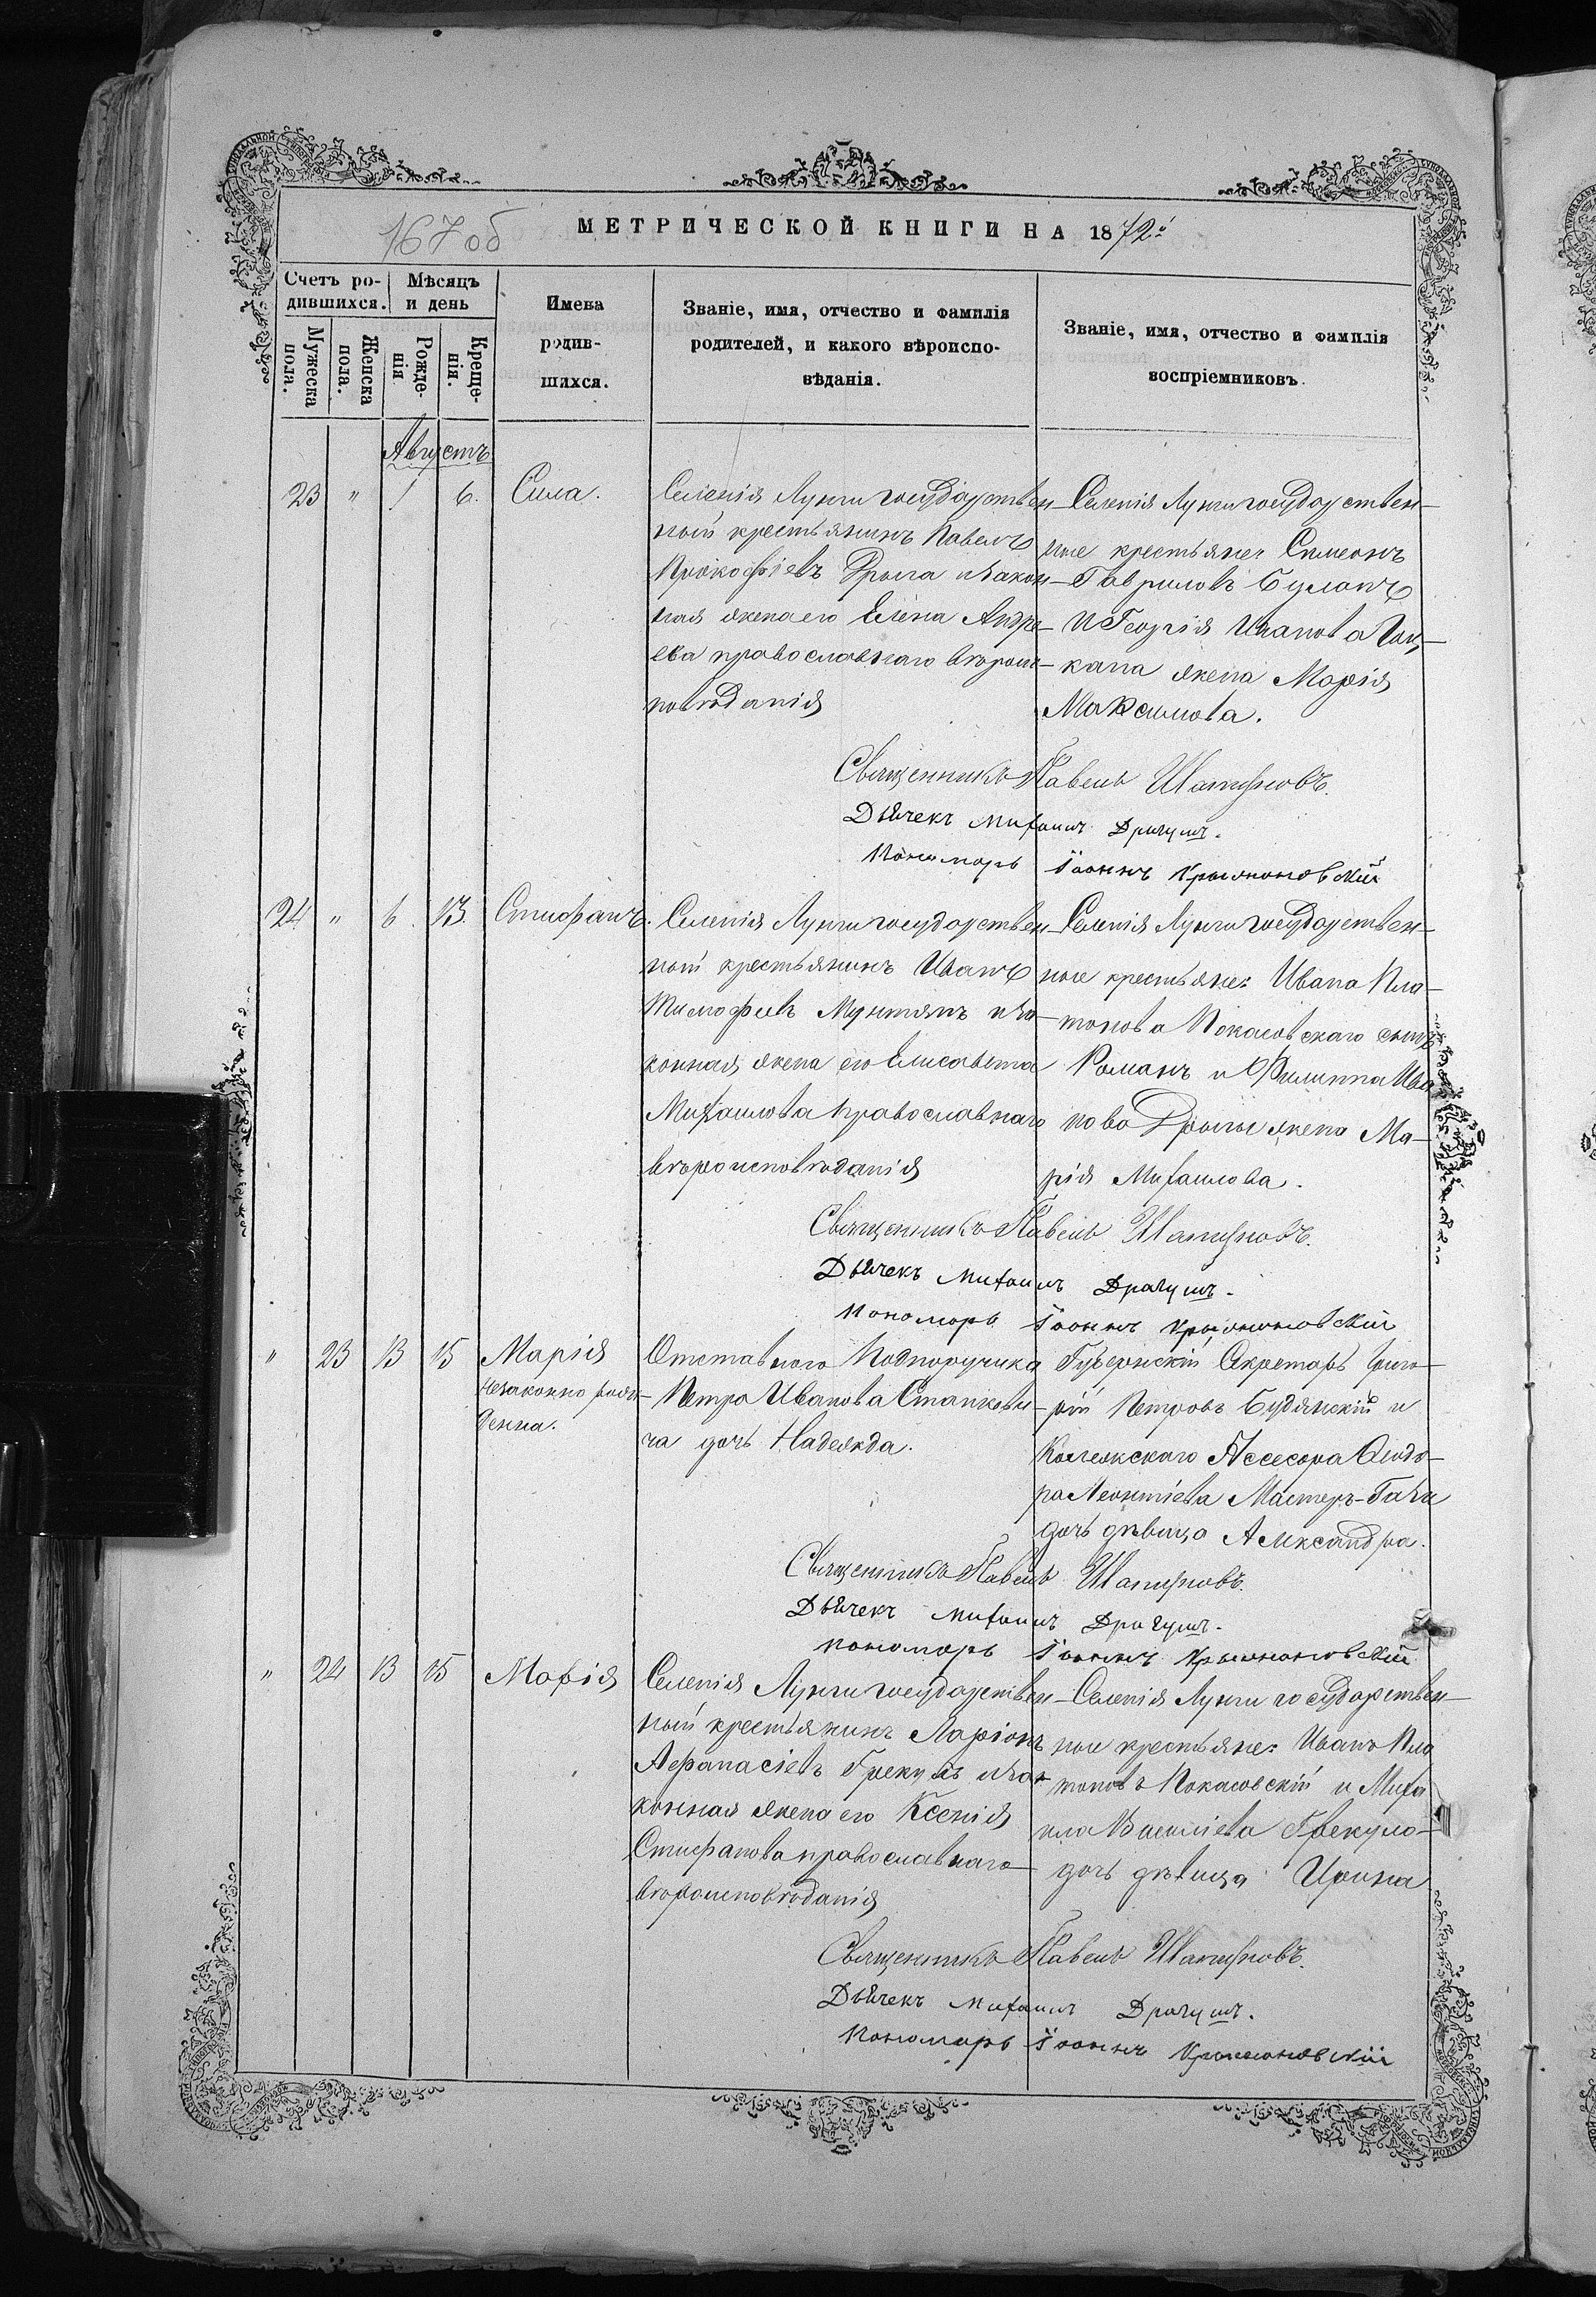 167 об
МЕТРИЧЕСКОЙ КНИГИ НА 1872й
Счетъ ро-
дившихся.
Мѣсяцъ
и день
Мужеска
пола.
Женска
пола.
Рожде-
нія
Креще-
нія.
Имена
родив-
шихся.
Званіе, имя, отчество и фамилія
родителей, и какого вѣроиспо-
вѣданія.
Званіе, имя, отчество и фамилія
воспріемниковъ.
Августъ
23 " 1 6. Сила.
Селенія Лунги государствен-
ный крестьянинъ Павелъ
Прокофіевъ Дрыга и закон-
ная жена его Елена Андре-
ева православнаго вѣроис-
повѣданія
Селенія Лунги государствен-
ные крестьяне: Симеонъ
Гавриловъ Буланъ
и Георгія Иванова
жена Марія
Максимова.
Священникъ Павелъ
Дьячекъ Михаилъ Драгушъ.
Пономарь Іоаннъ Крыжановскій
24 " 6. 13. Стефанъ.
Селенія Лунги государствен-
ный крестьянинъ Иванъ
Тимофеевъ Мунтянъ и за-
конная жена его Елисавета
Михаилова православнаго
вѣроисповѣданія
Селенія Лунги государствен-
ные крестьяне: Ивана Пла-
тонова Покасовскаго сынъ
Романъ и Филиппа Ива
нова Дрыги жена Ма-
рія Михаилова.
Священникъ Павелъ
Дьячекъ Михаилъ Драгушъ.
Пономарь Іоаннъ Крыжановскій
" 23 13 15 Марія
незаконно рож-
денна.
Отставного Подпоручика
Петра Иванова Станкеви-
ча дочь Надежда.
Губернскій Секретарь Григо-
рій Петровъ Будянскій и
Коллежскаго Асессора Феодо-
ра Леонтіева Мастеръ-Гази
дочь дѣвица Александра.
Священникъ Павелъ
Дьячекъ Михаилъ Драгушъ.
Пономарь Іоаннъ Крыжановскій
" 24 13 15 Марія
Селенія Лунги государствен-
ный крестьянинъ Ларіонъ
Афанасіевъ Грекулъ и за-
конная жена его Ксенія
Стефанова православнаго
вѣроисповѣданія
Селенія Лунги государствен-
ные крестьяне: Иванъ Пла
тоновъ Покасовскій и Миха
ила Василіева Грекула
дочь дѣвица Ирина
Священникъ Павелъ
Дьячекъ Михаилъ Драгушъ.
Пономарь Іоаннъ Крыжановскій